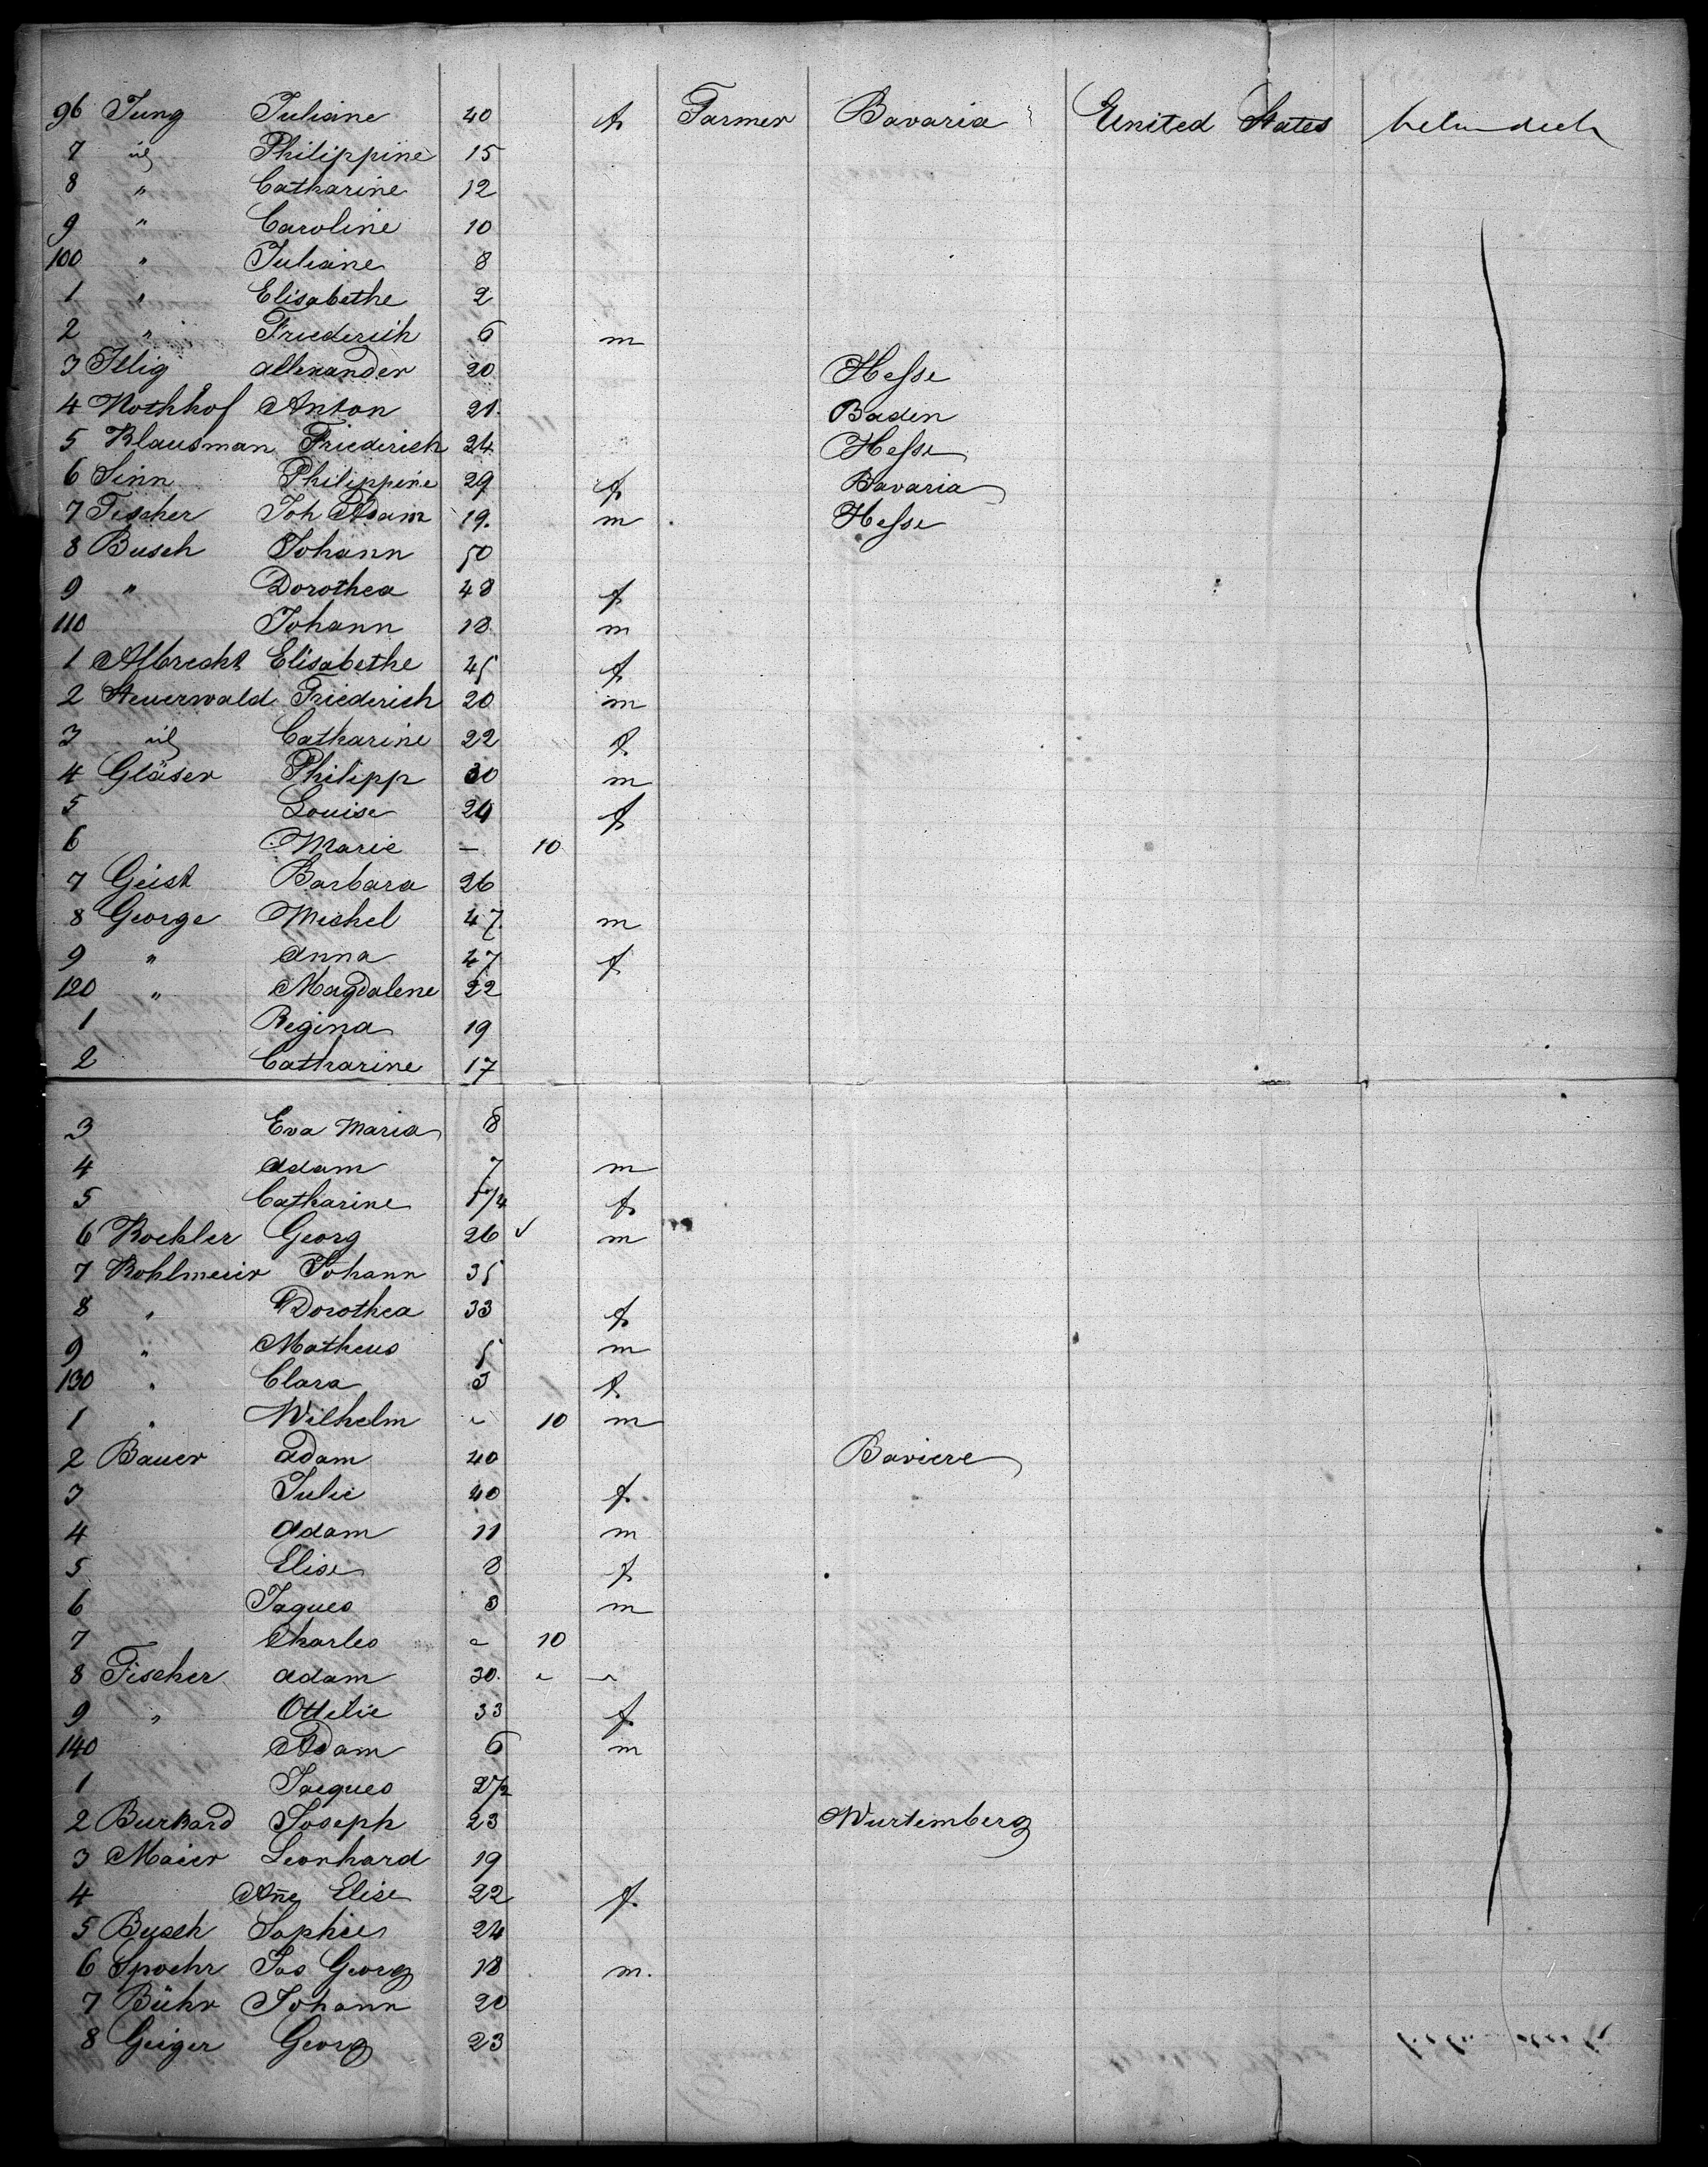 96 Jung Juliane 40 f Farmer Bavaria United States
7 id Philippine 15
8 " Catharine 12
9 " Caroline 10
100 " Juliane 8
1 " Elisabethe 2
2 " Friederich 6 m
3 Illig Allexander 20 Hesse
4 Nothhof Anton 21 Baden
5 Klausman Friederich 24 Hesse
6 Sinn Philippine 29 f Bavaria
7 Fischer Joh Adam 19. m Hesse
8 Busch Johann 50
9 " Dorothea 48 f
110 Johann 18 m
1 Albrecht Elisabethe 45 f
2 Steuerwald Friederich 20 m
3 id Catharine 22 f
4 Gläser Philipp 30 m
5 Louise 24 f
6 Marie — 10
7 Geist Barbara 26
8 George Michel 47 m
9 " Anna 47 f
120 " Magdalene 22
1 Regina 19
2 Catharine 17
3 Eva Maria 8
4 Adam 7 m
5 Catharine f
6 Koehler Georg 26 m
7 Kohlmeier Johann 35
8 " Dorothea 33 f
9 " Matheus 5 m
130 " Clara 3 f
1 " Wilhelm 10 m
2 Bauer Adam 40 Baviere
3 Julie 40 f
4 Adam 11 m
5 Elise 8 f
6 Jaques 3 m
7 Charles 10
8 Fischer Adam 30
9 " Ottilie 33 f
140 Adam 6 m
1 Jacques 2 1/2
2 Burkard Joseph 23 Wurtemberg
3 Maier Leonhard 19
4 Añe Elise 22 f
5 Busch Sophie 24
6 Spoehr Jos Georg 18 m.
7 Bühr Johann 20
8 Geiger Georg 23